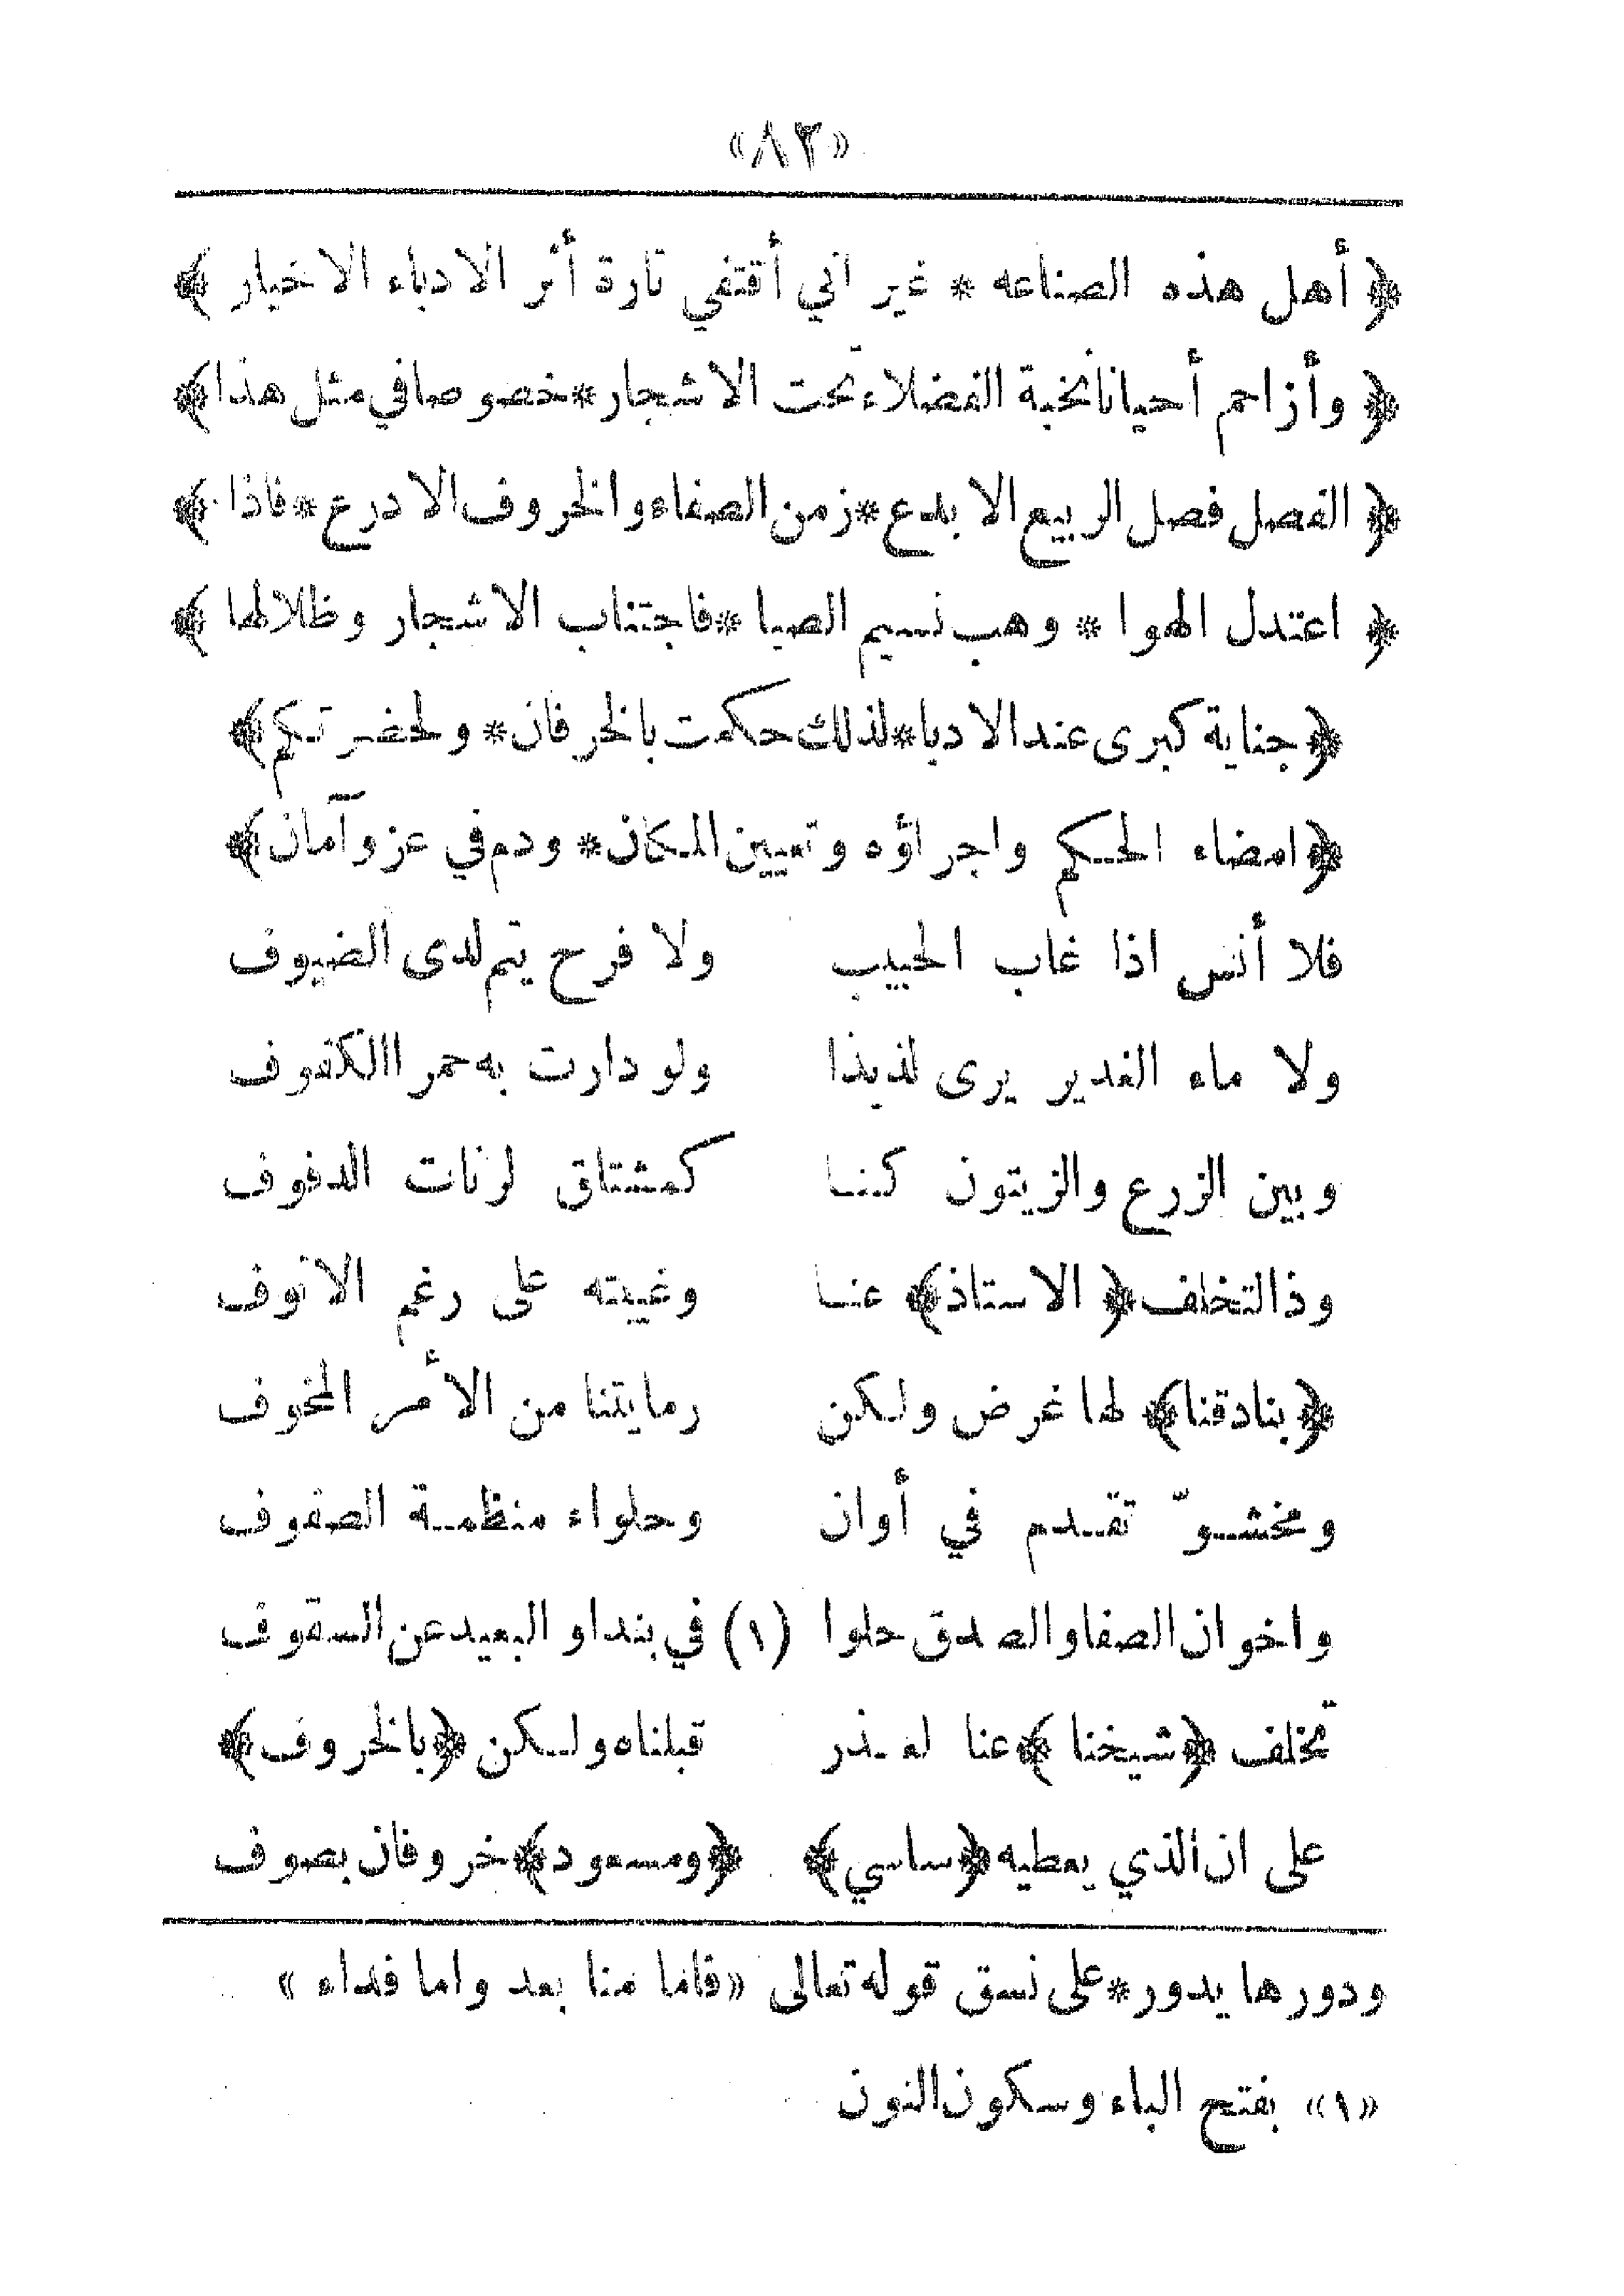 «٨٣»
﴿ أهل هذه الصناعه * غير اني أقتفي تارة أثر الادباء الاخيار ﴾
﴿ وأزاحم أحيانا نخبة الفضلاء تحت الاشجار * خصوصا في مثل هذا ﴾
﴿ الفصل فصل الربيع الابدع * زمن الصفاء والخروف الادرع * فاذا ﴾
﴿ اعتدل الهوا * وهب نسيم الصبا * فاجتناب الاشجار وظلالها ﴾
﴿ جناية كبرى عند الادبا * لذلك حكمت بالخرفان * ولحضرتكم ﴾
﴿ امضاء الحكم واجراؤه وتعيين المكان * ودم في عز وآمان ﴾
فلا أنس اذا غاب الحبيب ولا فرح يتم لدى الضيوف
ولا ماء الغدير يرى لذيذا ولو دارت به حمر االكفوف
وبين الزرع والزيتون كنا كمشتاق لرنات الدفوف
وذا لتخلف ﴿ الاستاذ ﴾ عنا وغيبته على رغم الانوف
﴿ بنادقنا ﴾ لها غرض ولكن رمايتنا من الأمر المخوف
ومخشوّ تقدم في أوان وحلواء منظمة الصفوف
واخوان الصفا والصدق حلوا (١) في بنداو البعيد عن السقوف
تخلف ﴿ شيخنا ﴾ عنا لعذر قبلناه ولكن ﴿ بالخروف ﴾
على ان الذي يعطيه ﴿ ساسي ﴾ ﴿ ومسعود ﴾ خروفان بصوف
ودورها يدور * على نسق قوله تعالى «فاما منا بعد واما فداء»
«١» بفتح الباء وسكون النون